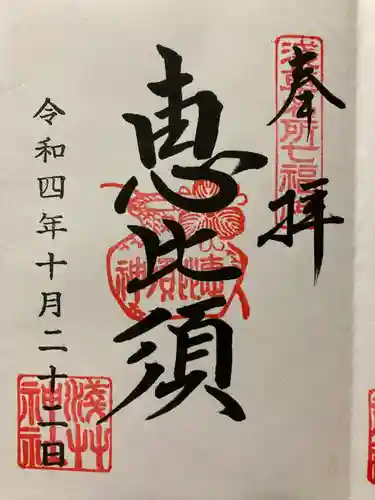 奉拝
浅草名所七福神
恵比須
令和四年十月二十二日
淺草神社